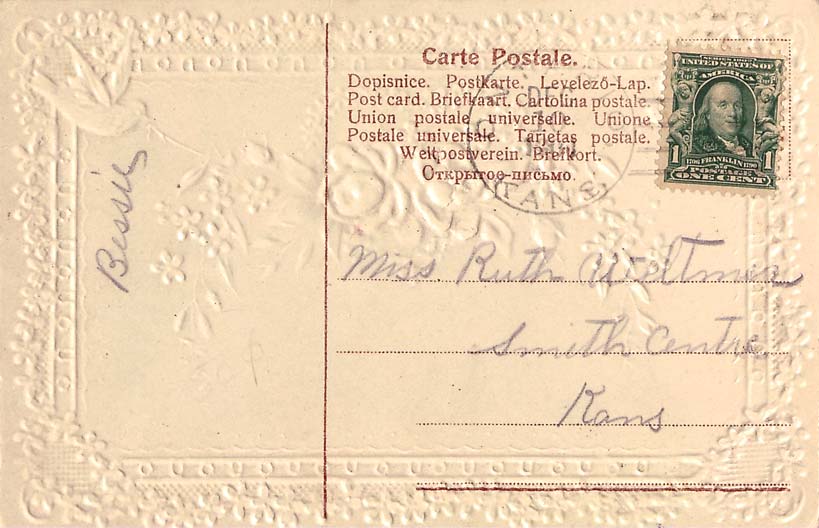 Carte Postale.
Dopisnice. Postkarte. Levelező-Lap.
Post card. Briefkaart. Cartolina postale.
Union postale universelle. Unione
Postale universale. Tarjetas postale.
Weltpostverein. Brefkort.
Открытое-письмо.
SERIES 1902
UNITED STATES OF
AMERICA
1 1706 FRANKLIN 1790 1
POSTAGE
ONE CENT
KANS.
Bessie
Miss Ruth Weltmer
Smith Centre
Kans